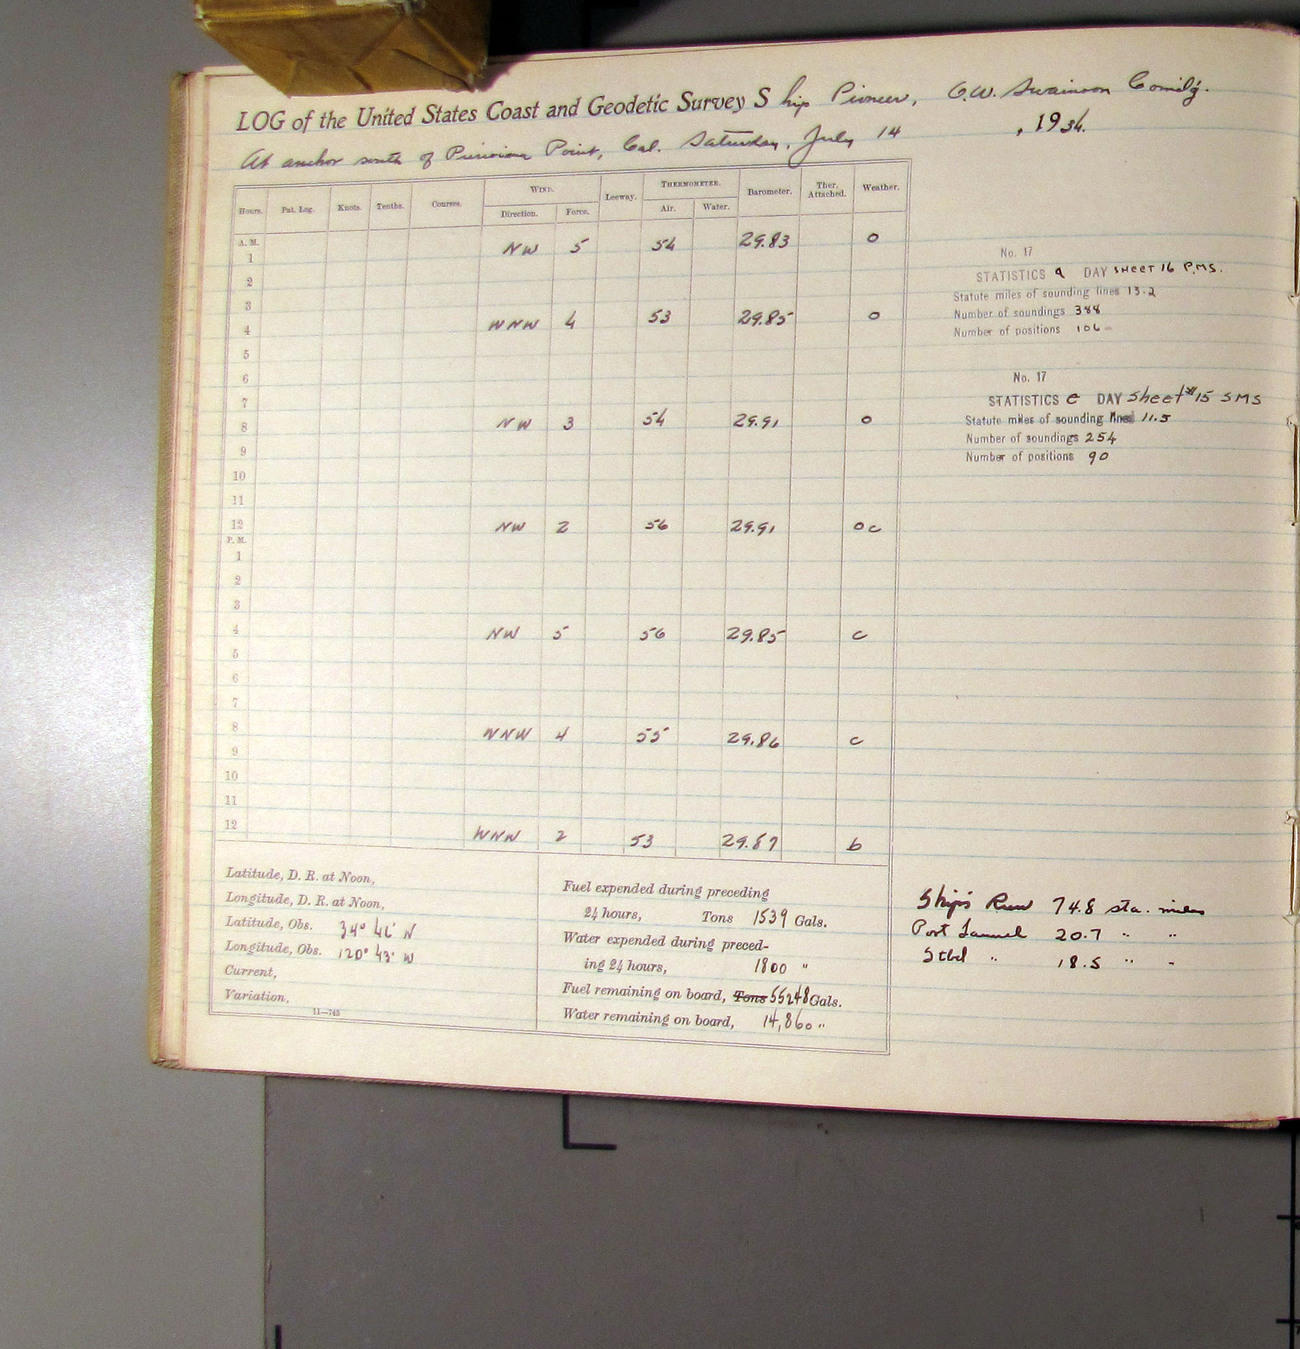 LOG of the United States Coast and Geodetic Survey Ship Pioneer, O.W. Swainson Comd'g.
At anchor south of Purisima Point, Cal. Saturday, July 14, 1934.
Hours. Pat. Log. Knots. Tenths. Courses. WIND. Leeway. THERMOMETER. Barometer. Ther. Attached. Weather.
Direction. Force. Air. Water.
A. M.
1 NW 5 54 29.83 o
2
3
4 WNW 4 53 29.85 o
5
6
7
8 NW 3 54 29.91 o
9
10
11
12 NW 2 56 29.91 oc
P. M.
1
2
3
4 NW 5 56 29.85 c
5
6
7
8 WNW 4 55 29.86 c
9
10
11
12 WNW 2 53 29.87 b
No. 17
STATISTICS a DAY SHEET 16 P.M.S.
Statute miles of sounding lines 13.2
Number of soundings 388
Number of positions 106
No. 17
STATISTICS e DAY Sheet #15 SMS
Statute miles of sounding lines 11.5
Number of soundings 254
Number of positions 90
Latitude, D. R. at Noon,
Longitude, D. R. at Noon,
Latitude, Obs. 34° 46' N
Longitude, Obs. 120° 43' W
Current,
Variation,
11—745
Fuel expended during preceding
24 hours, Tons 1539 Gals.
Water expended during preced-
ing 24 hours, 1800 "
Fuel remaining on board, Tons 55248 Gals.
Water remaining on board, 14,860 "
Ship's Run 74.8 sta. miles
Port Launch 20.7 " "
Stbd " 18.5 " "